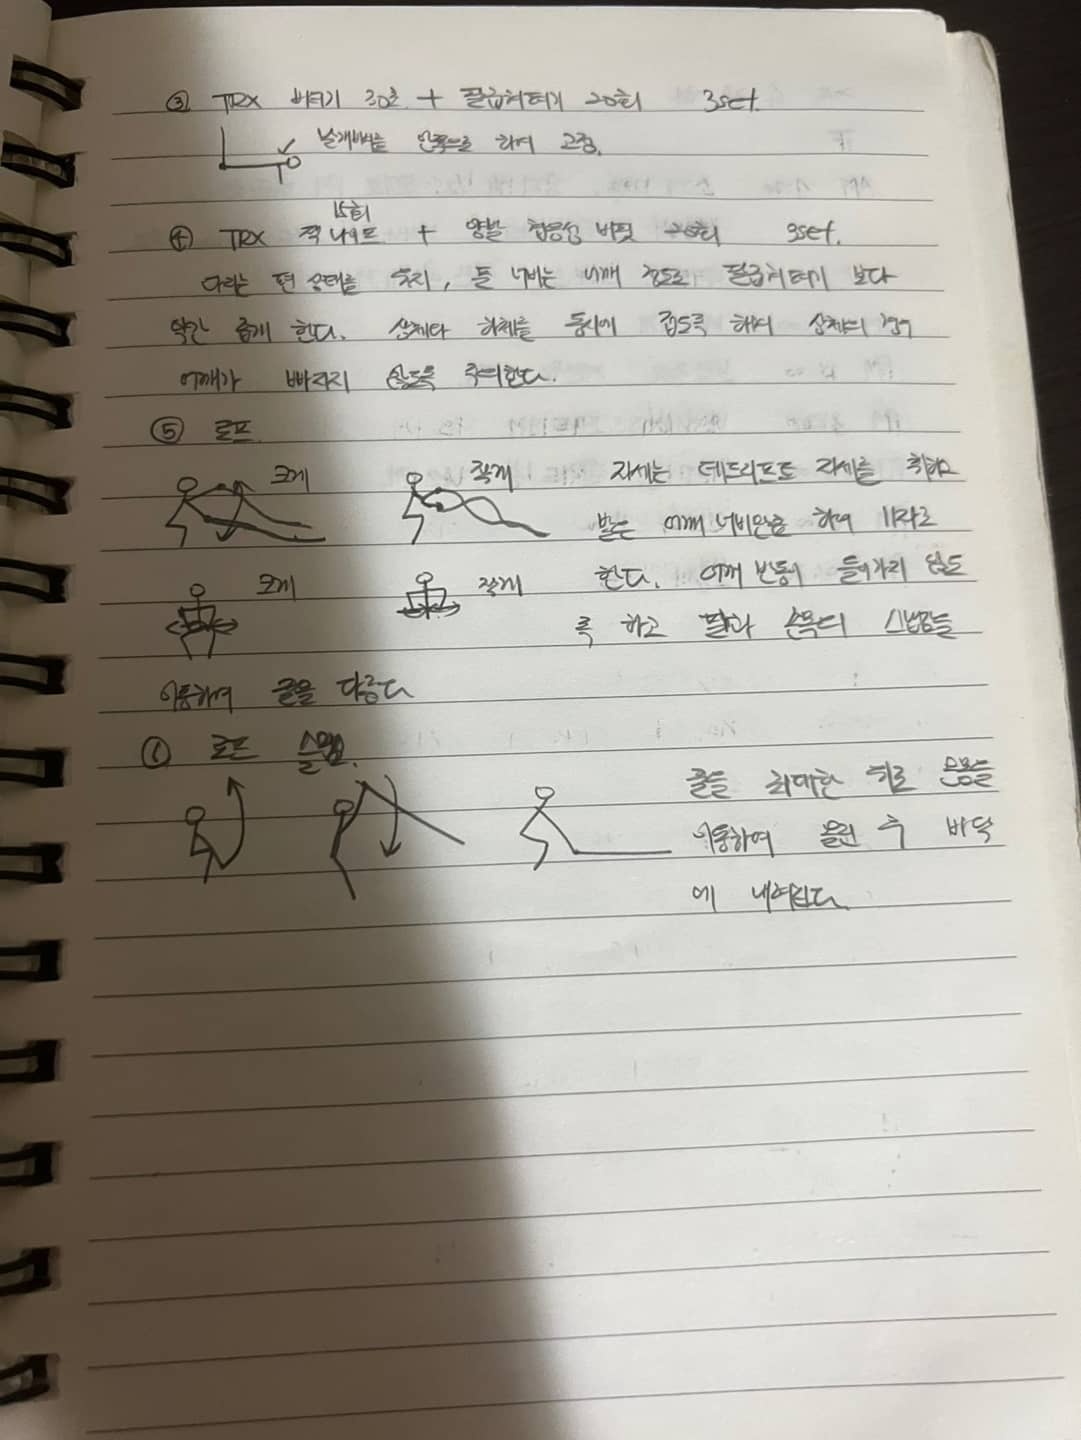 ③ TRX 버티기 30초 + 팔굽혀펴기 20회 3set.
날개뼈를 안쪽으로 하여 고정.
15회
④ TRX 잭 나이프 + 양발 점프 버핏 20회 3set.
다리는 편 상태를 유지, 손 너비는 어깨 정도로 팔굽혀펴기 보다
약간 좁게 한다. 상체와 하체를 동시에 접도록 하며 상체의 경우
어깨가 빠지지 않도록 주의한다.
⑤ 로프
크게 작게 자세는 데드리프트 자세를 취하고
발은 어깨 너비만큼 하여 11자로
크게 작게 한다. 어깨 반동이 들어가지 않도
록 하고 팔과 손목의 스냅을
이용하여 줄을 다룬다
⑥ 로프 슬램.
줄을 최대한 위로 온몸을
이용하여 올린 후 바닥
에 내려친다.